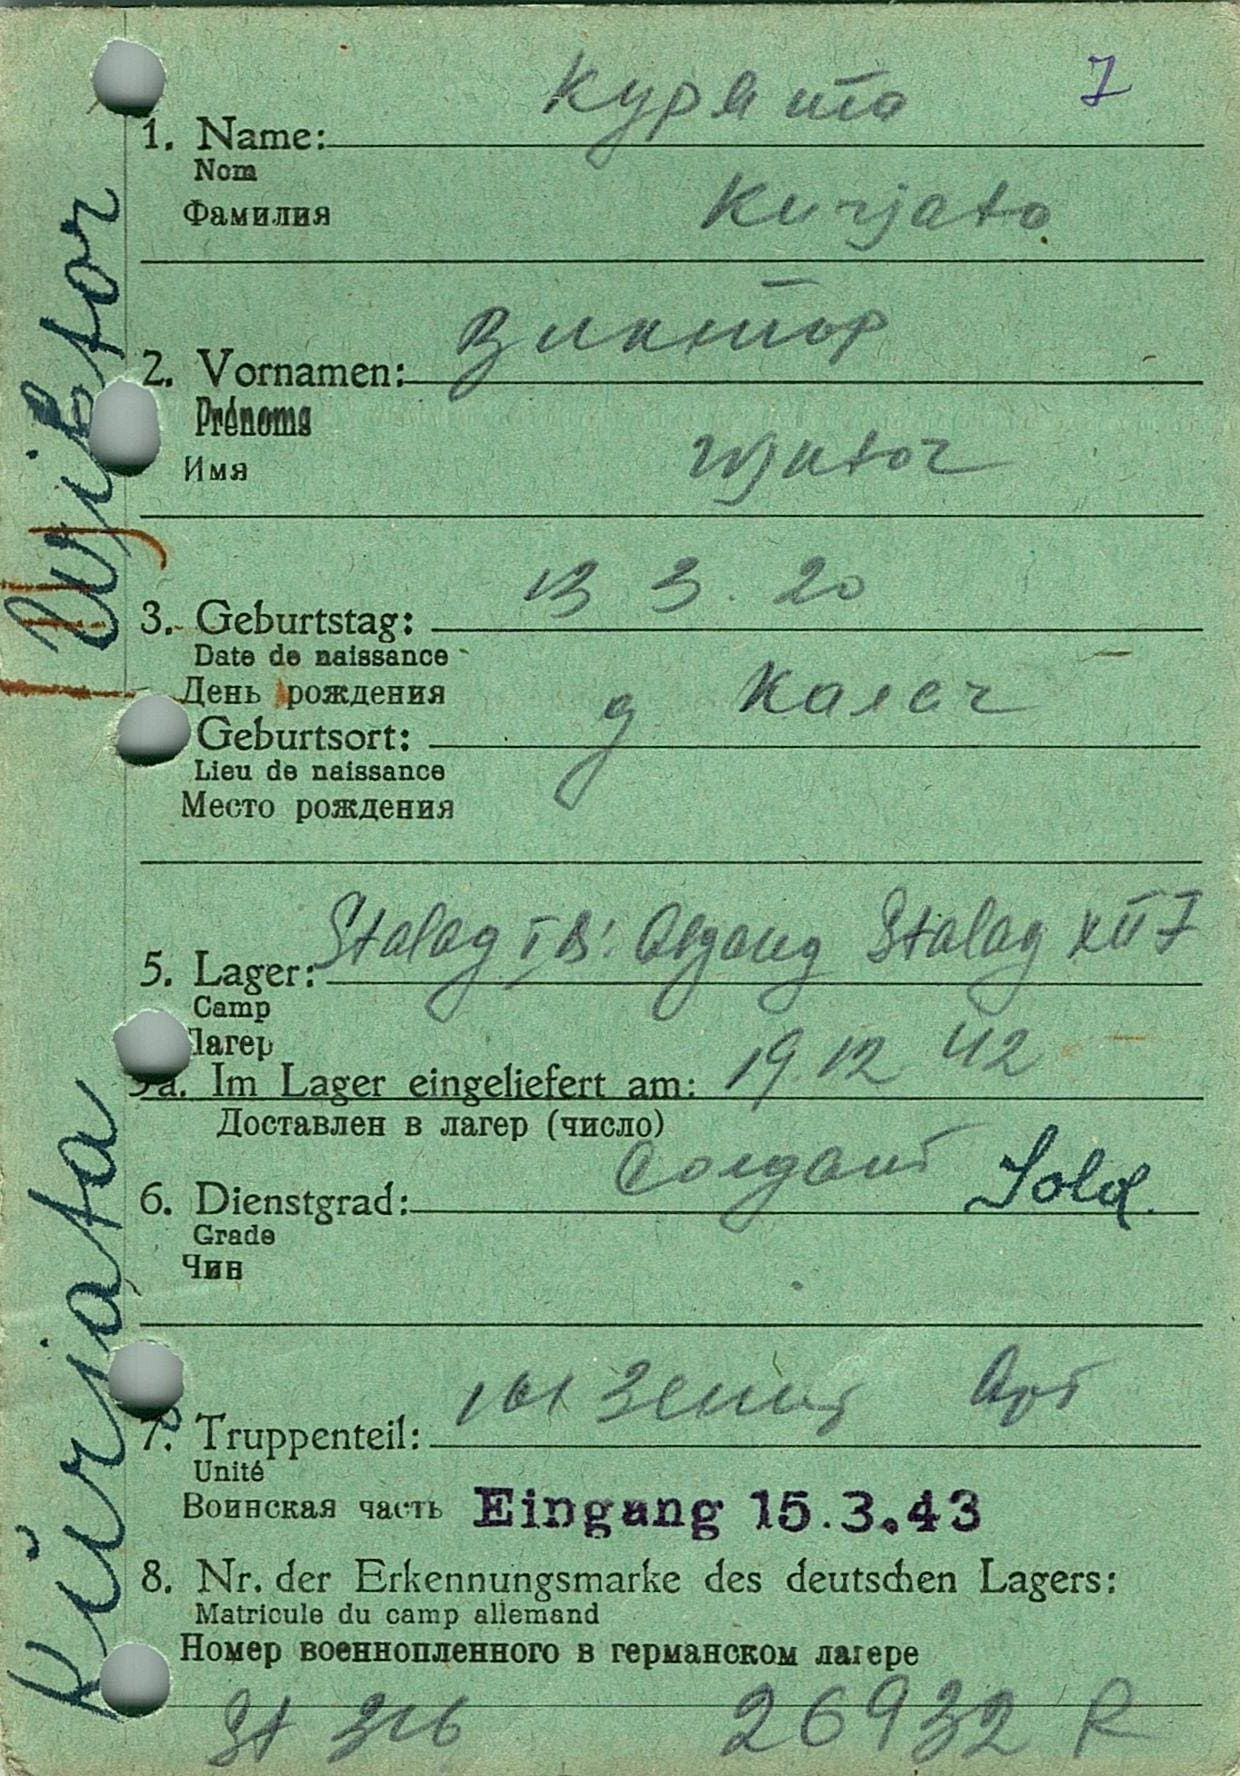 7
Курята
1. Name:
Nom
Фамилия
Kurjato
Виктор
2. Vornamen:
Prénoms
Имя
Wjktor
13 3. 20
3. Geburtstag:
Date de naissance
День рождения
д
Geburtsort:
Lieu de naissance
Место рождения
5. Lager: Stalag I B: Abgang Stalag XII F
Camp
Лагер
5a. Im Lager eingeliefert am: 19.12 42
Доставлен в лагер (число)
6. Dienstgrad: Солдат Sold.
Grade
Чин
7. Truppenteil: Зенит Арт
Unité
Воинская часть Eingang 15.3.43
8. Nr. der Erkennungsmarke des deutschen Lagers:
Matricule du camp allemand
Номер военнопленного в германском лагере
St 316 26932 R
Kŭrjata Wjktor